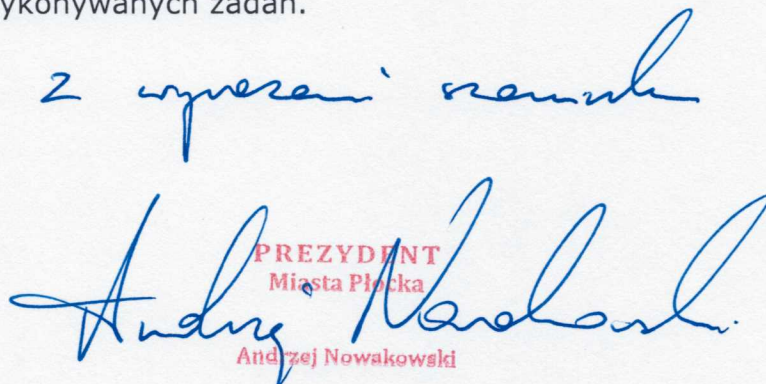 ykonywanych zadań.
z wyrazami szacunku
PREZYDENT
Miasta Płocka
Andrzej Nowakowski
Andrzej Nowakowski